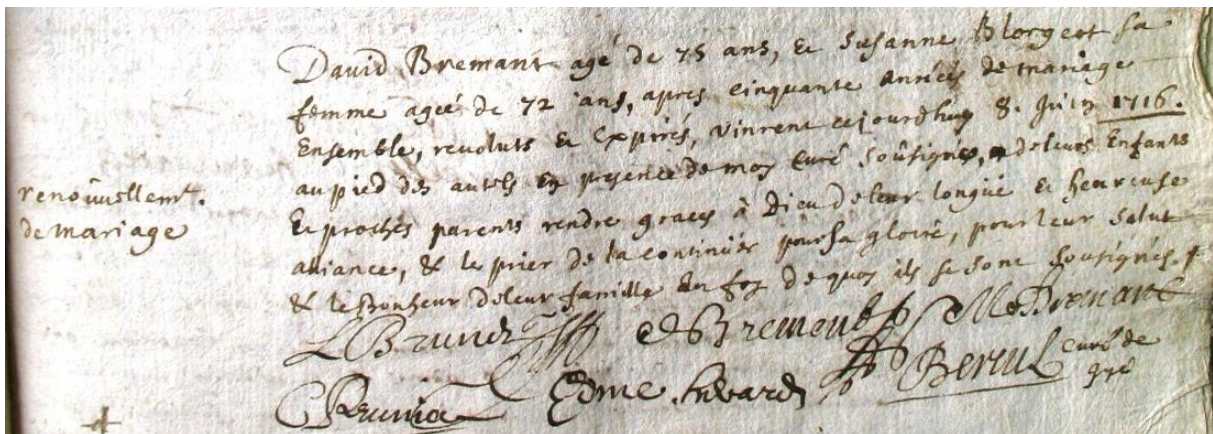 David Bremant agé de 75 ans, et Susanne Blorgeot sa
femme agée de 72 ans, apres cinquante années de mariage
Ensemble, revoluts et Expirés, vinrent cejourdhuy 8. Juin 1716.
au pied des autels En presence de moy curé soûsigné, deleurs Enfants
Et prochés parents rendre graces à Dieu deleur longue et heureuse
aliance, & le prier de la continuër pour sa gloire, pour leur salut
& le bonheur deleur famille En foy de quoy ils se sont sousignés.
renouvellemt.
de mariage
Bremant
Edme
curé de